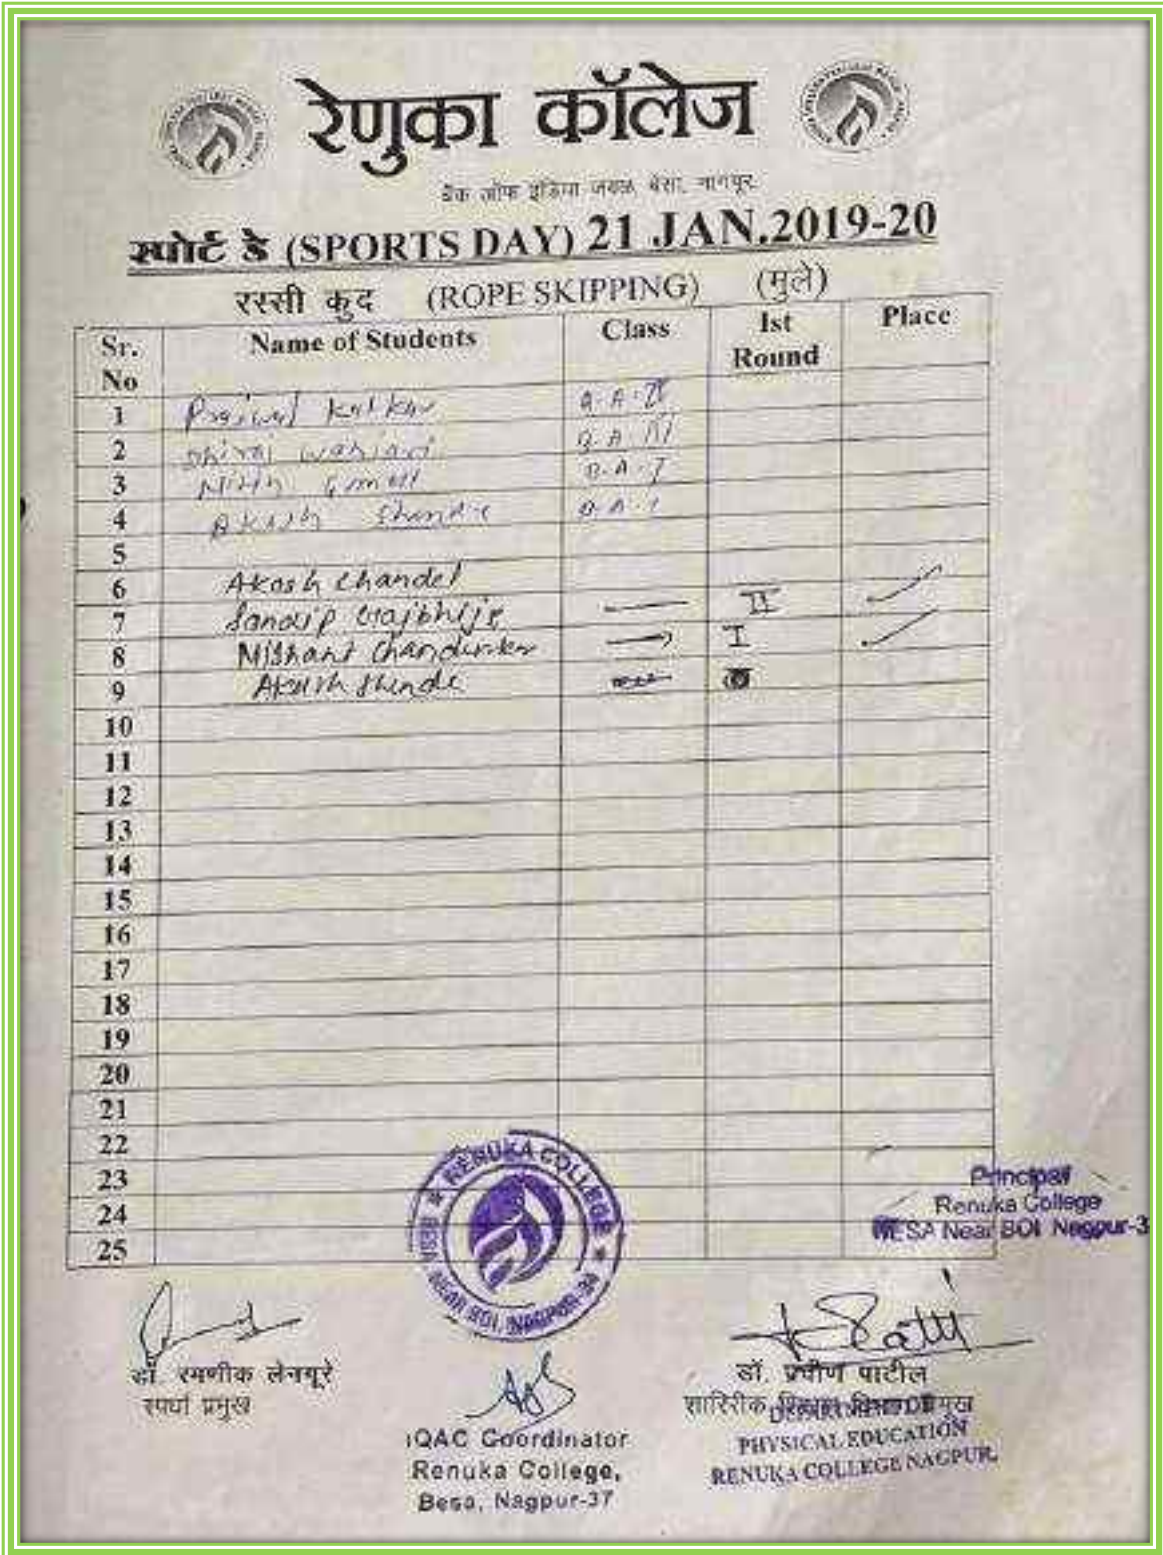 रेणुका कॉलेज
बँक ऑफ इंडिया जवळ, बेसा, नागपूर.
स्पोर्ट डे (SPORTS DAY) 21 JAN.2019-20
रस्सी कुद (ROPE SKIPPING) (मुले)
Sr. No Name of Students Class Ist Round Place
1 B.A.
2 B.A. III
3 Nitin B.A.I
4 Akash Shende B.A.I
5
6 Akash Chandel
7 Sandip Gajbhije II
8 Mishant I
9 Akash Shende
10
11
12
13
14
15
16
17
18
19
20
21
22
23
24
25
RENUKA COLLEGE
BESA, NEAR BOI, NAGPUR-34
Principal
Renuka College
BESA Near BOI Nagpur-3
डॉ. रमणीक लेनगूरे
स्पर्धा प्रमुख
IQAC Coordinator
Renuka College,
Besa, Nagpur-37
डॉ. प्रवीण पाटील
शारिरीक शिक्षण विभाग प्रमुख
DEPARTMENT OF
PHYSICAL EDUCATION
RENUKA COLLEGE NAGPUR.